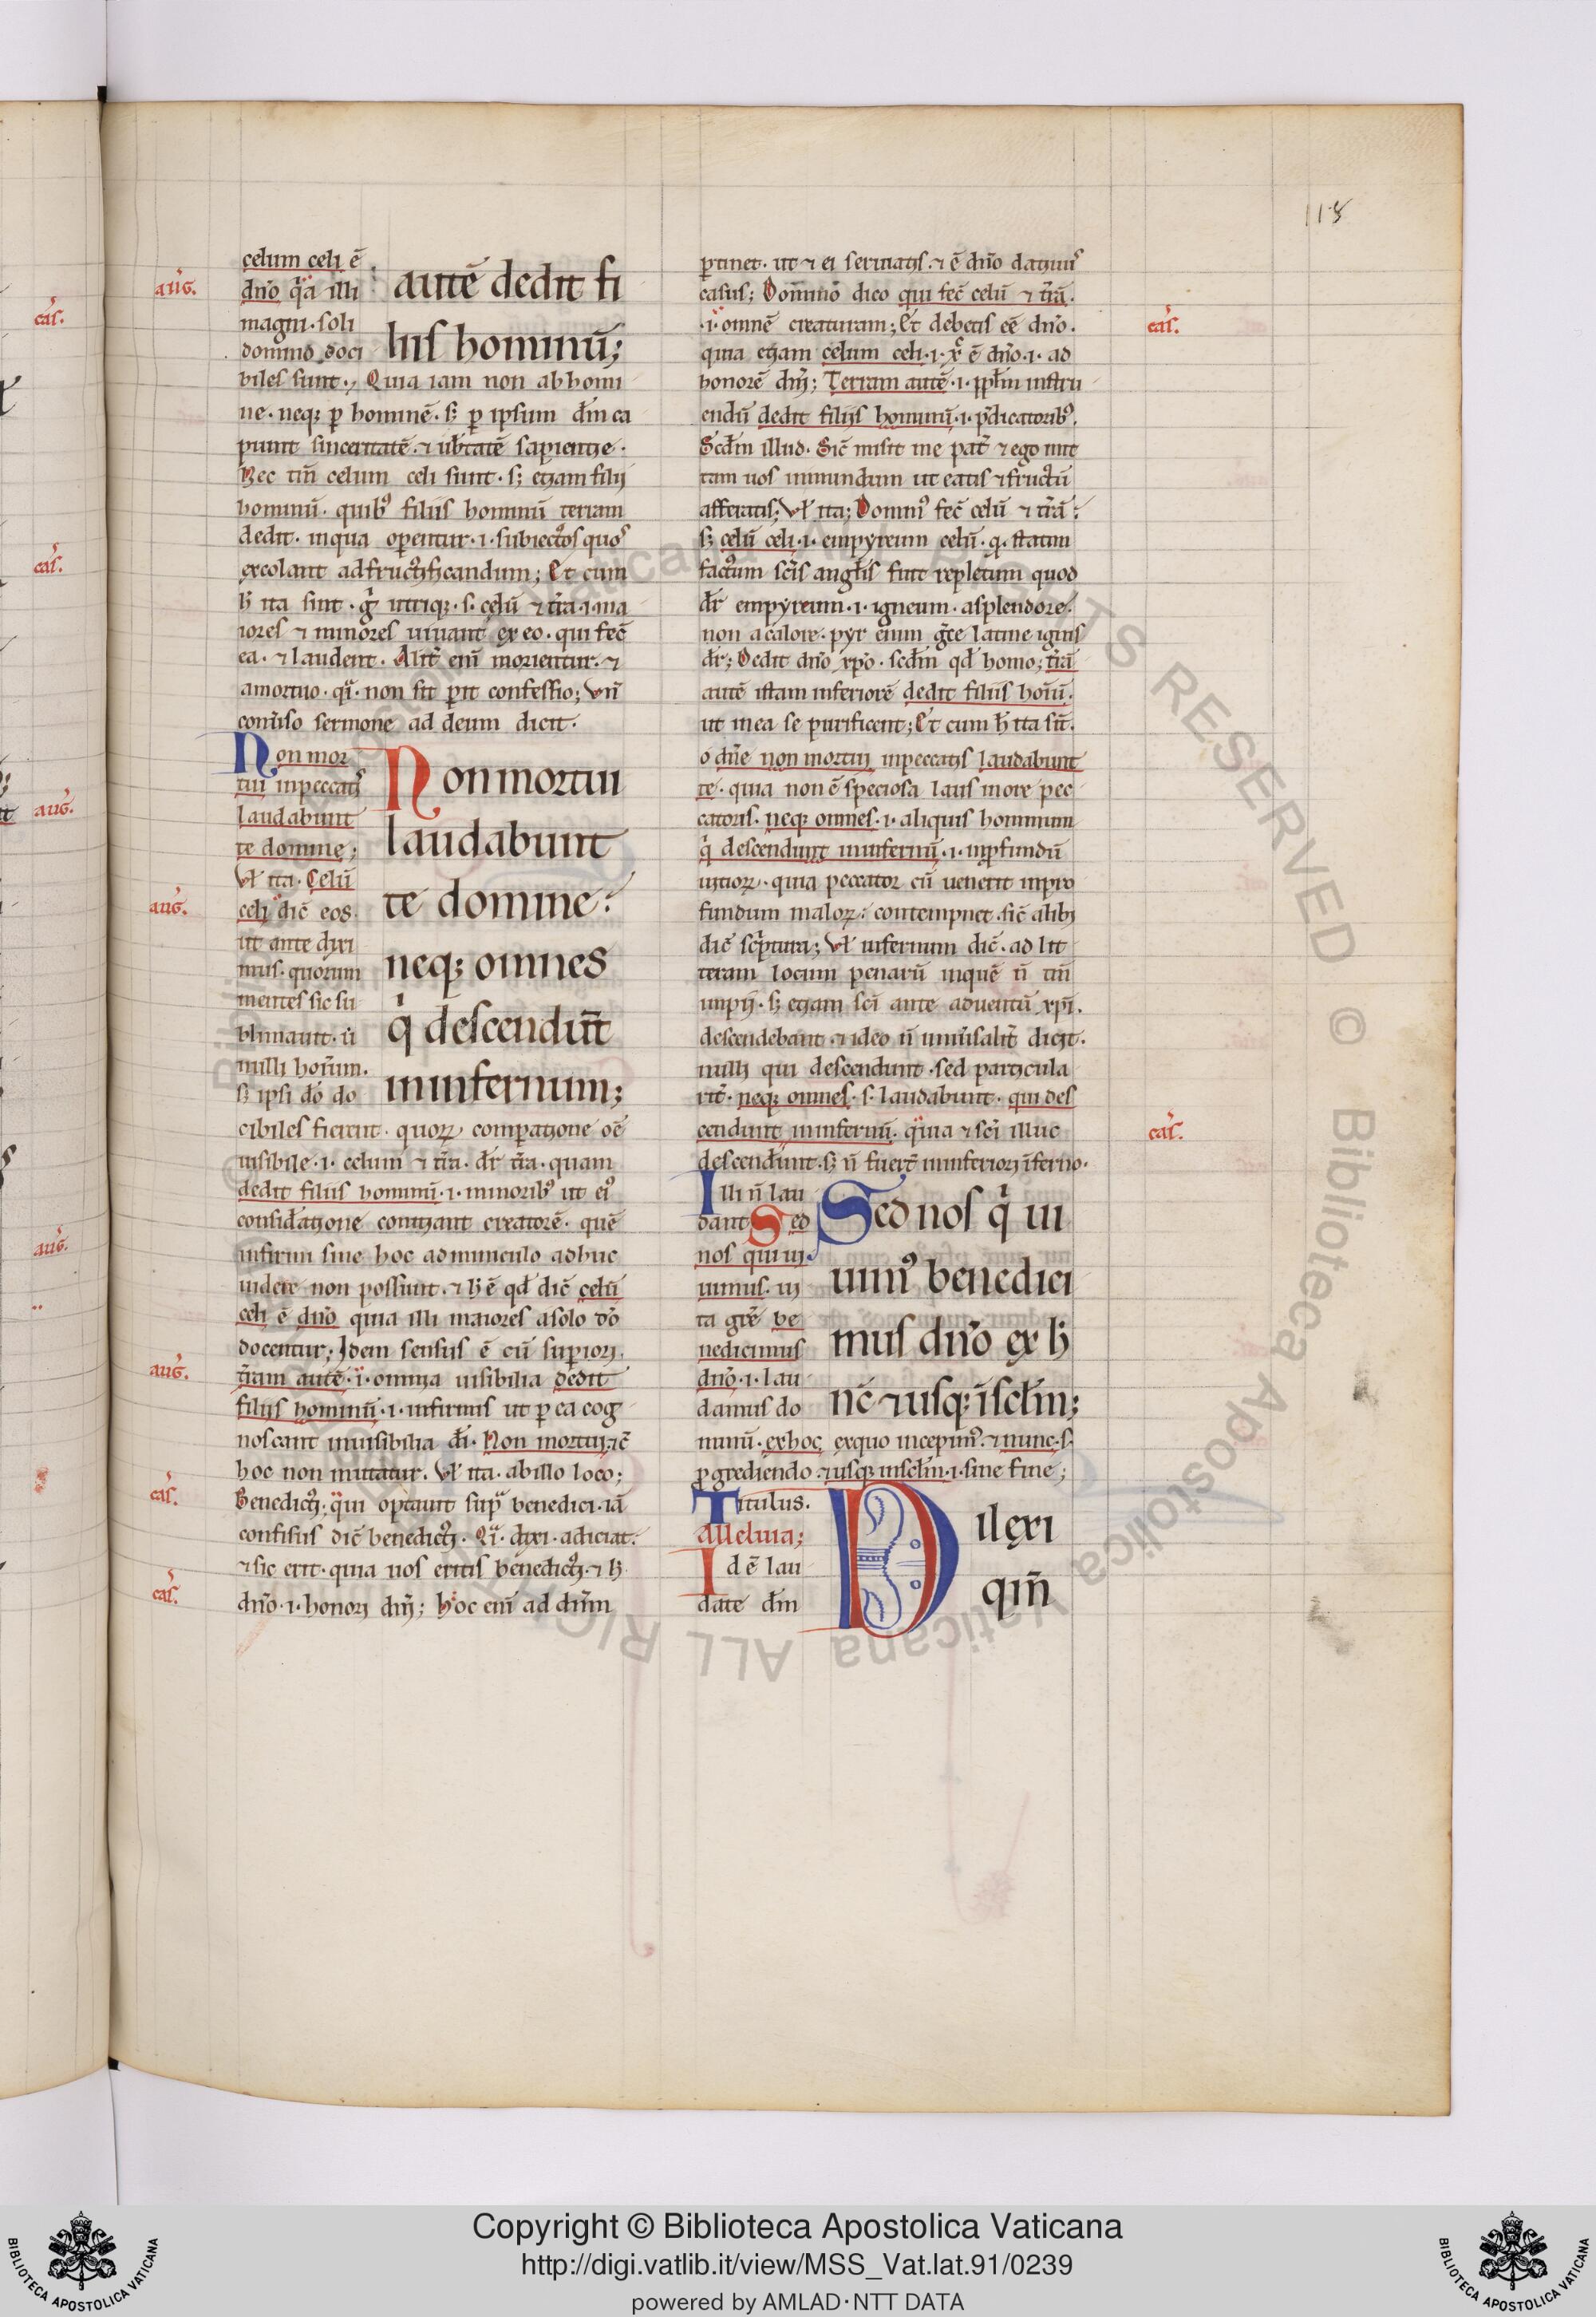 118
celum celi ē
dn̄o q̈a illi
magni·soli
domino doci
autē dedit fi
liis hominū;
aug̃.
biles sunt·, Quia iam non ab homi
ne·neq; ꝑ hominē·s; ꝑ ipsum dm̄ ca
piunt sinceritatē·⁊ ub̄tatē sapientie·
Nec tm̄ celum celi sunt·s; etiam filii
hominū·quibꝰ filiis hominū terram
dedit·in qua operentur·i·subiectos quos
excolant ad fructificandum; Et cum
h̄ ita sint·g̊ utriq;·s·celū ⁊ tr̄a·i·ma
iores ⁊ minores uiuant ex eo·qui fec̄
ea·⁊ laudent·Alit̄ eni᷑ morientur·⁊
a mortuo·q̈i·non sit ꝑit confessio; Vn̄
conuerso sermone ad deum dicit·
Non mor
tui in peccatis
laudabunt
te domine;
Vl̄ ita·Celū
celi dic̄ eos
ut ante dixi
mus·quorum
mentes sic su
blimauit·ū
nulli horum.
s; ipsi dō do
Non mortui
laudabunt
te domine:
neq; omnes
qͥ descendūt
in infernum;
aug̃.
cibiles fierent·quoꝝ comparatione oē
uisibile·i·celum ⁊ tr̄a·dr̄ tr̄a·quam
dedit filiis hominū·i·minoribꝰ ut eiꝰ
consid̄atione coniciant creatorē·quē
infirmi sine hoc adminiculo adhuc
uidere non possunt·⁊ h̄ ē qd̄ dic̄ celū
celi ē dn̄o quia illi maiores a solo dō
docentur; Idem sensus ē cū superiori.
tr̄am autē·i·omnia uisibilia dedit
filiis hominū·i·infirmis ut ꝑ ea cog
noscant inuisibilia di̅·Non mortui·⁊c̄
hoc non mutatur·Vl̄ ita·ab illo loco;
aug̃.
Benedicti·qui optauit supͣ benedici·iā
confisus dic̄ benedicti·Qͣi·dixi·adiciat·
⁊ sic erit·quia uos eritis benedicti·⁊ h̄
dn̄o·i·honori dn̄i; hoc eni᷑ ad dn̄m
cas̃.
cas̃.
ꝑtinet·ut ⁊ ei seruiatis·⁊ ē dn̄o datiuus
casus; Domino dico qui fec̄ celū ⁊ tr̄ā·
·i·omnē creaturam; Et debetis eē dn̄o·
quia etiam celum celi·i·xp̄c ē dn̄o·i·ad
honorē dn̄i; Terram autē·i·ppl̄m instru
endū dedit filiis hominū·i·p̄dicatoribꝰ.
Scd̄m illud·Sic̄ misit me pat̄ ⁊ ego mit
tam uos in mundum ut eatis ⁊ fructū
afferatis; Vl̄ ita; Dominꝰ fec̄ celū ⁊ tr̄ā:
s; celū celi·i·empyreum celū·q̄·statim
factum sc̄is angl̄is fuit repletum quod
dr̄ empyreum·i·igneum·a splendore·
non a calore·pyr enim gr̄ce latine ignis
dr̄; Dedit dn̄o xp̄o·scd̄m qd̄ homo; tr̄ā
autē istam inferiorē dedit filiis hoīū·
ut in ea se purificent; Et cum h̄ ita sīt·
o dn̄e non mortui in peccatis laudabunt
te·quia non ē speciosa laus in ore pec
catoris·neq; omnes·i·aliquis hominum
qͥ descendunt in infernū·i·in ꝓfundū
uitioꝝ·quia peccator cū uenerit in pro
fundum maloꝝ: contempnet·sic̄ alibi
dic̄ scͥptura; Vl̄ infernum dic̄·ad lit
teram locum penarū in quē n̄ tm̄
impii·s; etiam sc̄i ante aduentū xp̄i·
descendebant·⁊ ideo n̄ uniuersalit̄ dicit·
nulli qui descendunt·sed particula
rit̄·neq; omnes·s·laudabunt·qui des
cendunt in infernū·quia ⁊ sc̄i illuc
descendunt·s; n̄ fuer̄t in inferiori īferno·
cas̃.
cas̃.
Illi n̄ lau
dant Sed
nos qui ui
uimus·ui
ta gr̄e be
nedicimus
dn̄o·i·lau
damus do
Sed nos qͥ ui
uimꝰ benedici
mus dn̄o ex h̄
nc̄ ⁊ usq; ī scl̄m;
minū·ex hoc ex quo incepimꝰ·⁊ nunc·s·
ꝓgrediendo·⁊ usq; in scl̄m·i·sine fine;
Titulus.
alleluia;
Id ē lau
date dm̄
Dilexi
qm̄
cas̃.
cas̃.
aug̃.
aug̃.
© Biblioteca Apostolica Vaticana ALL RIGHTS RESERVED
Copyright © Biblioteca Apostolica Vaticana
http://digi.vatlib.it/view/MSS_Vat.lat.91/0239
powered by AMLAD·NTT DATA
BIBLIOTECA APOSTOLICA VATICANA
BIBLIOTECA APOSTOLICA VATICANA